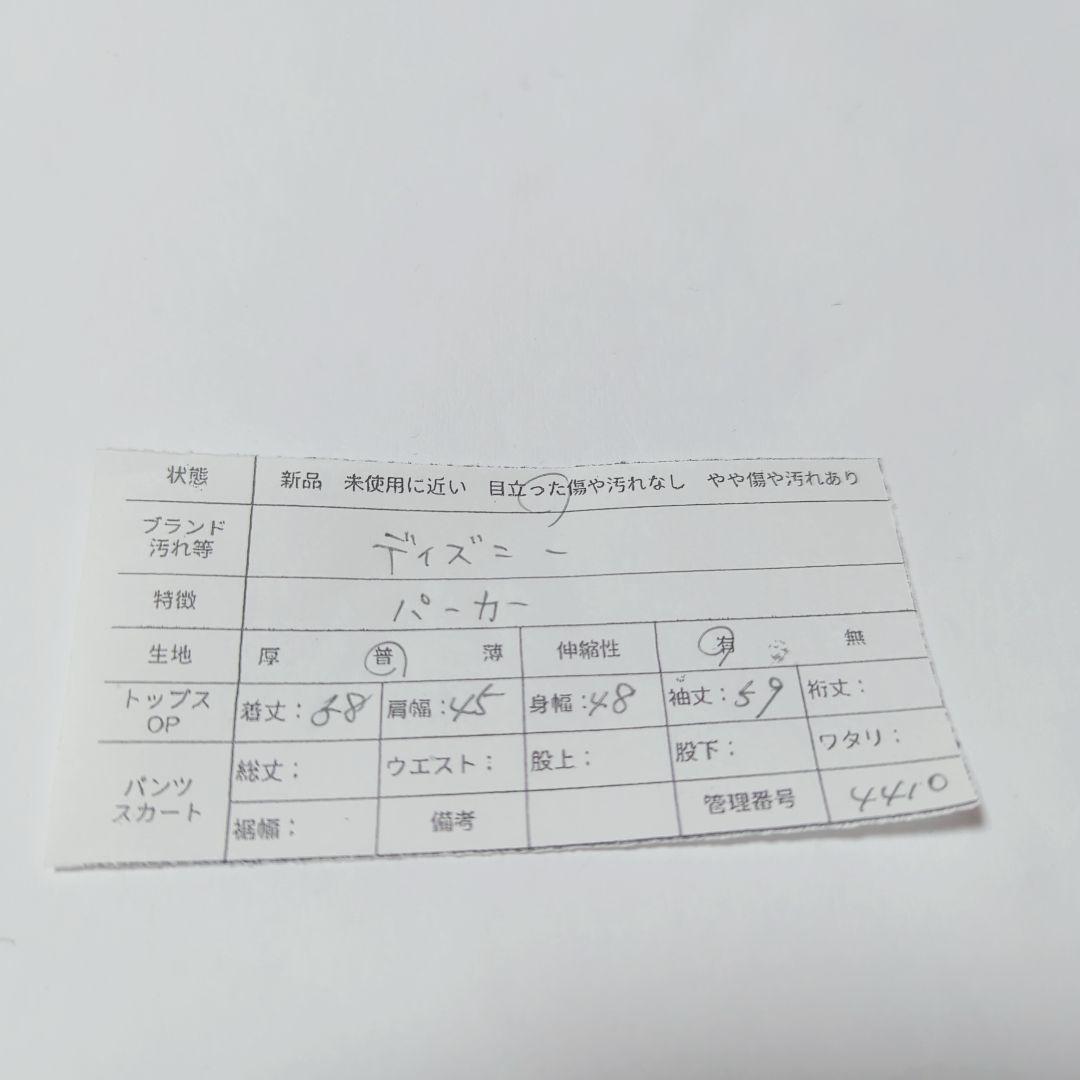 状態 新品 未使用に近い 目立った傷や汚れなし やや傷や汚れあり
ブランド
汚れ等 ディズニー
特徴 パーカー
生地 厚 普 薄 伸縮性 有 無
トップス
OP 着丈：68 肩幅：45 身幅：48 袖丈：59 裄丈：
パンツ
スカート 総丈： ウエスト： 股上： 股下： ワタリ：
裾幅： 備考 管理番号 4410